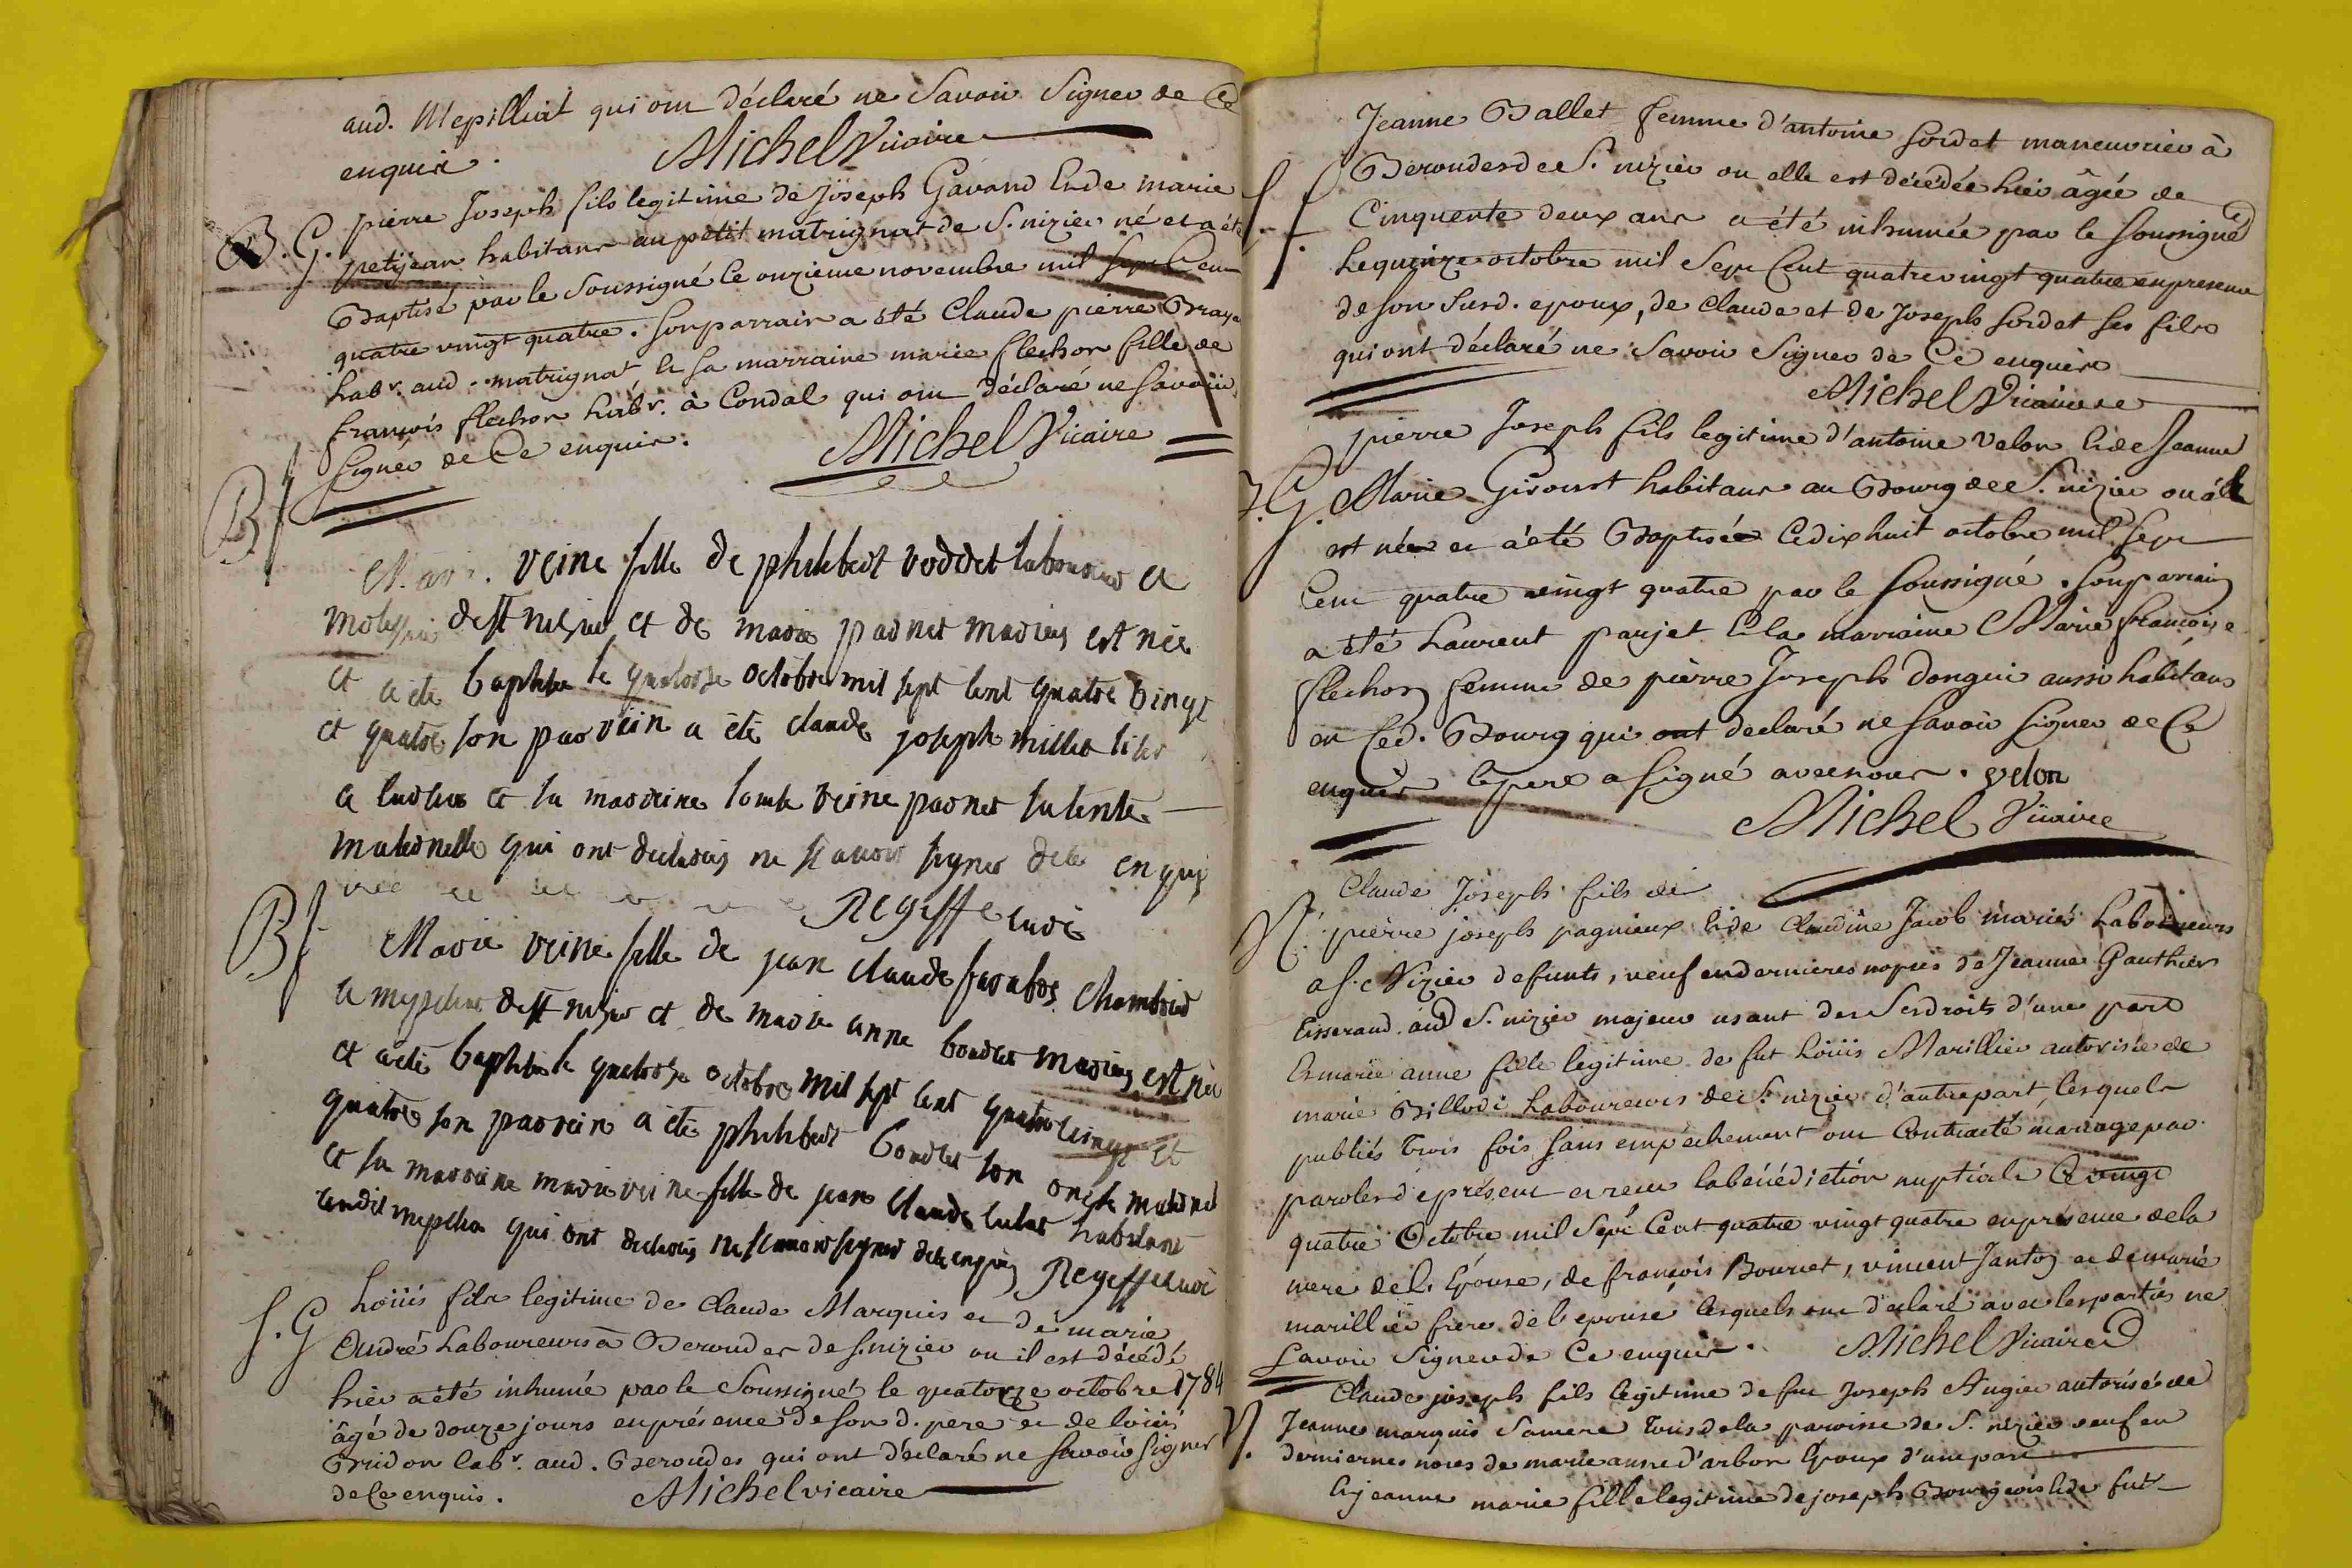 aud. Mepilliat qui ont déclaré ne Savoir Signer de Ce
enquis.
Michel Vicaire
B. G. pierre Joseph fils legitime de Joseph Gavand Et de marie
petijean habitans au petit matrignat de S. nizier né et a été
Baptisé par le Soussigné le onzieme novembre mil Sept Cent
quatre vingt quatre. Son parrain a été Claude pierre Braye
habr. aud. matrignat et Sa marraine marie flechon fille de
françois flechon habr. à Condal qui ont déclaré ne Savoir
Signer de Ce enquis.
Michel Vicaire
B f
reine fille de philibert voddet laboureur a
dest nizier et de marie parnet maries est née
et a ete baptisee le quatorze octobre mil sept cent quatre vingt
et quatre son parrein a été claude joseph millet
a et sa marreine reine parnet sa tente
maternelle qui ont declarés ne scavoir signer dece enquis
Regeffe curé
B f
Marie reine fille de jean claude chambrier
a dest nizier et de marie anne boudet maries est née
et a été baptisée le quatorze octobre mil sept cent quatre vingt et
quatre son parrein a été philibert boudet son oncle maternel
et sa marreine marie reine fille de jean claude habitant
audit qui ont declarés ne scavoir signer dece enquis Regeffe curé
S. G Loüis fils legitime de Claude Marquis et de marie
André Laboureurs à Beroudes de S. nizier ou il est décédé
hier a été inhumé par le Soussigné le quatorze octobre 1784
âgé de douze jours en présence de Son d. pere et de loüis
Bridon labr. aud. Beroudes qui ont déclaré ne Savoir Signer
de Ce enquis.
Michel vicaire
Jeanne Ballet femme d'antoine Sordet maneuvrier à
Beroudes de S. nizier ou elle est décédée hier âgée de
Cinquente deux ans a été inhumée par le Soussigné
Le quinze octobre mil Sept Cent quatre vingt quatre en presence
de Son Susd. epoux, de Claude et de Joseph Sordet Ses fils
qui ont déclaré ne Savoir Signer de Ce enquis
Michel Vicaire
pierre Joseph fils legitime d'antoine Velon Et de Jeanne
Marie habitans au Bourg de S. nizier ou il
est né et a été Baptisé Le dix huit octobre mil Sept
Cent quatre vingt quatre par le Soussigné. Son parrain
a été Laurent parjet Et la marraine Marie françoise
flechon femme de pierre Joseph donguï aussi habitans
en Ced. Bourg qui ont declaré ne Savoir Signer de Ce
enquis le pere a Signé avec nous. velon
Michel Vicaire
Claude Joseph fils de
pierre joseph pagnieux Et de Claudine Jacob mariés Laboureurs
a S. Nizier defunts, veuf en dernieres nopces de Jeanne Gauthier
tisserand aud S. nizier majeur usant de Ses droits d'une part
Et marie anne fille legitime de fut Loüis Marillier autorisée de
marie Billodi Laboureurs de S. nizier d'autre part, lesquels
publiés trois fois Sans empêchement ont Contracté mariage par
paroles de présent et reçu la bénédiction nuptiale Le vingt
quatre Octobre mil Sept Cent quatre vingt quatre en présence de la
mere de l'Epouse, de françois Bourcet, vincent Janton et de marie
marillier frere de l'epouse lesquels ont déclaré avec les partiés ne
Savoir Signer de Ce enquis.
Michel Vicaire
Claude joseph fils legitime de fut Joseph Augier autorisé de
Jeanne marquis Sa mere tous de la paroisse de S. nizier veuf en
dernieres noces de marie anne d'arbon Epoux d'une part
Et jeanne marie fille legitime de joseph Bourgeois Et de fut